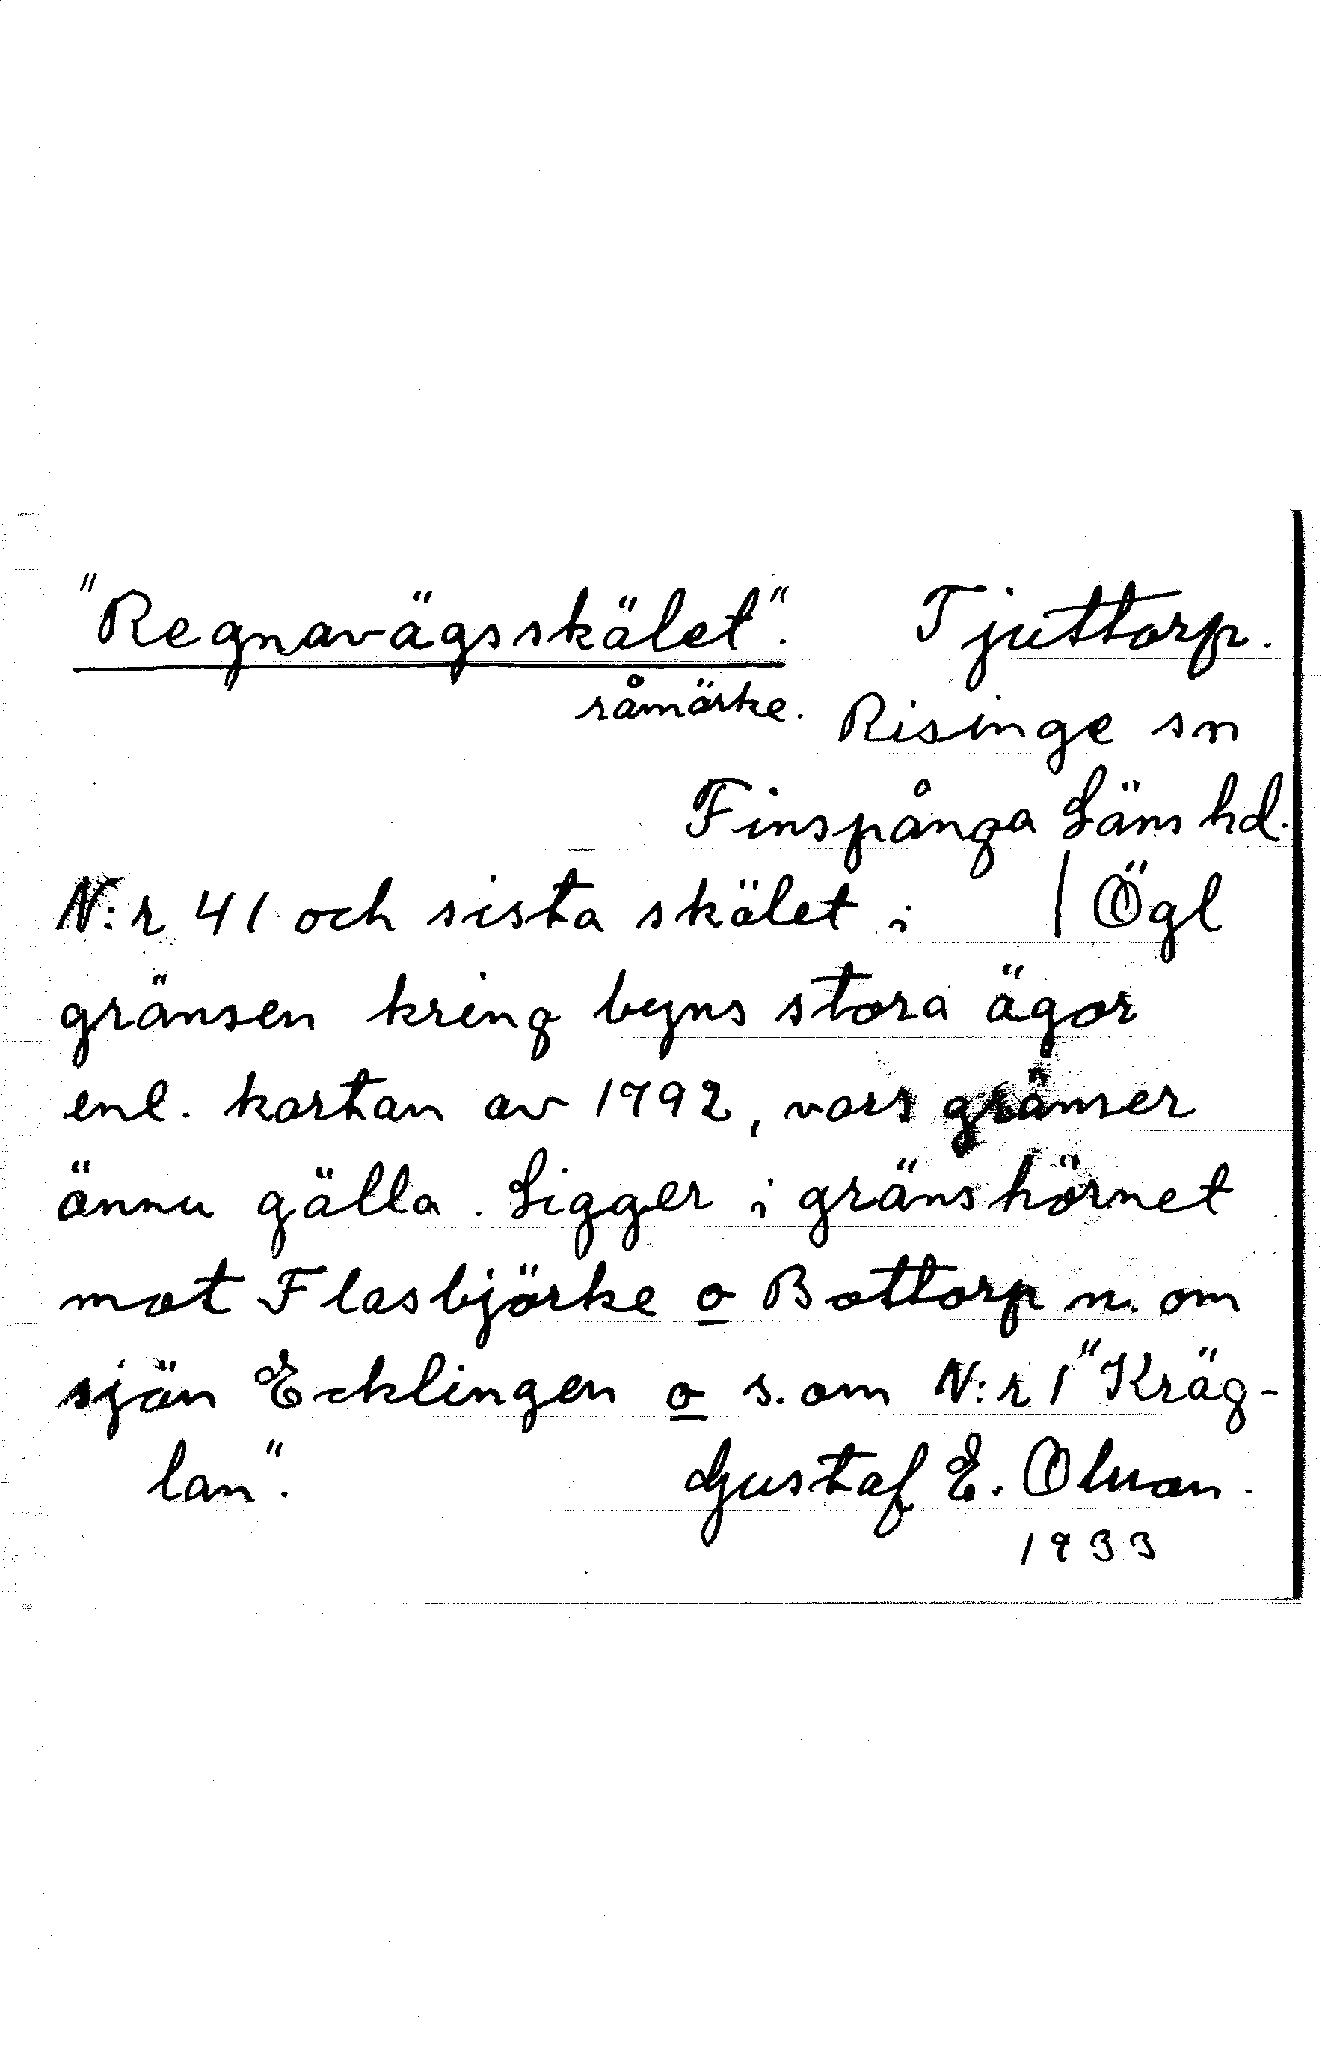 "Regnavägsskälet". Tjuttorp.
råmärke. Risinge sn
Finspånga Läns hd.
N:r 41 och sista skälet i | Ögl
gränsen kring byns stora ägor
enl. kartan av 1792, vars gränser
ännu gälla. Ligger i gränshörnet
mot Flasbjörke o Bottorp n. om
sjön Ecklingen o s. om N:r 1 "Kräg-
lan". Gustaf E. Olsson.
1933